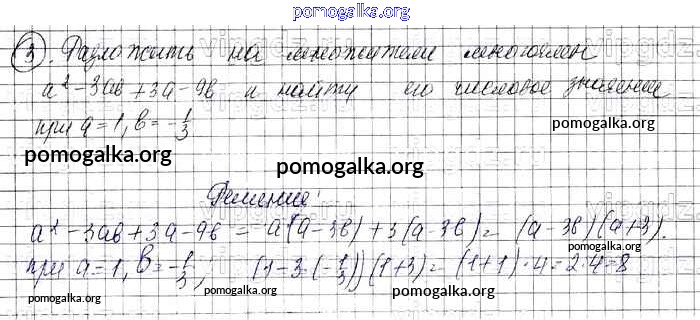 pomogalka.org
3. Разложить на множители многочлен
a² - 3ab + 3a - 9b и найти его числовое значение
при a = 1, b = -1/3
pomogalka.org
pomogalka.org
pomogalka.org
Решение:
a² - 3ab + 3a - 9b = a(a - 3b) + 3(a - 3b) = (a - 3b)(a + 3).
pomogalka.org
при a = 1, b = -1/3, (1 - 3·(-1/3))(1 + 3) = (1 + 1)·4 = 2·4 = 8
pomogalka.org
pomogalka.org
pomogalka.org